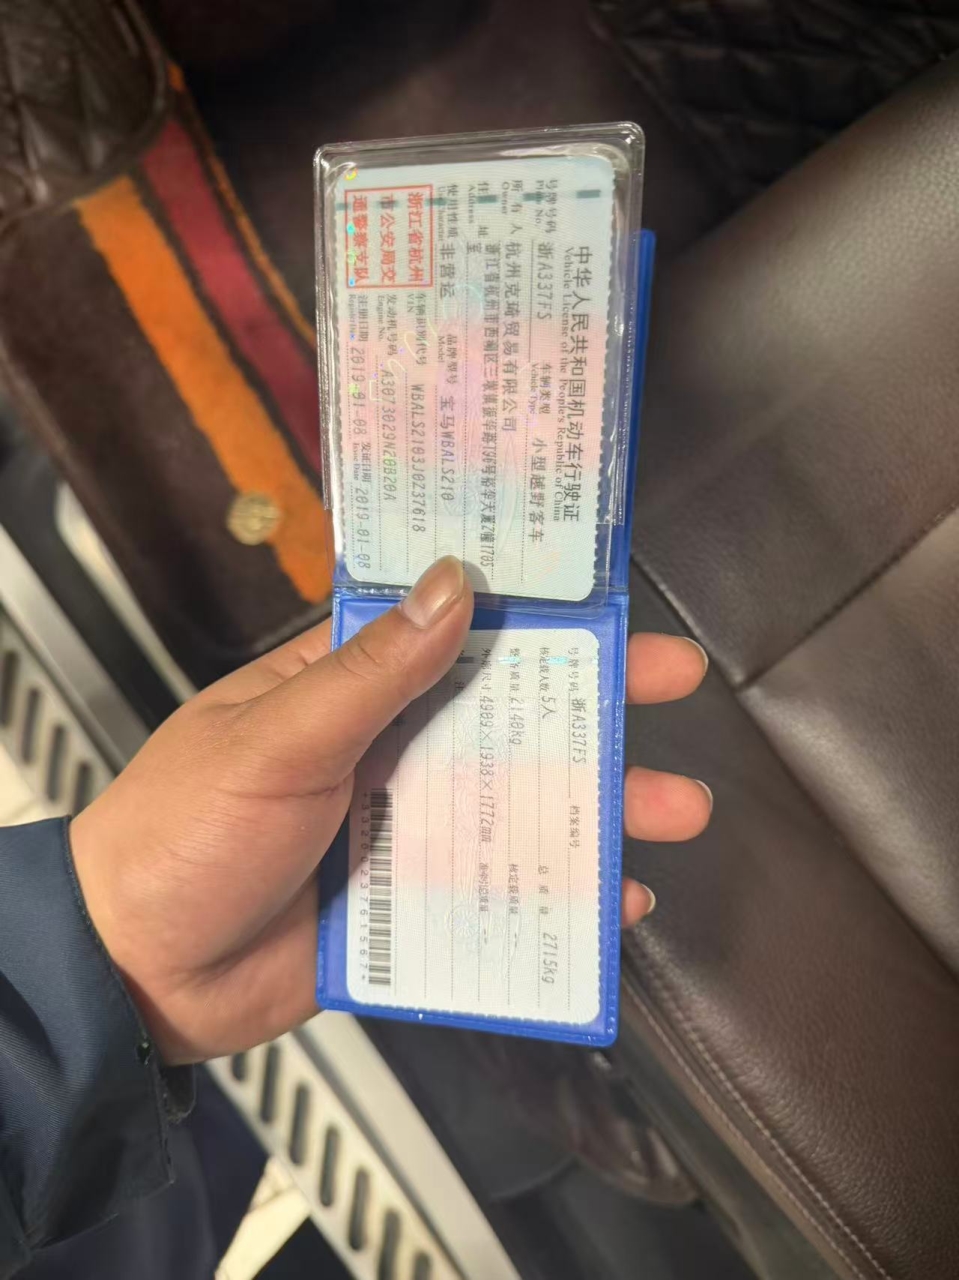 中华人民共和国机动车行驶证
Vehicle License of the People's Republic of China
号牌号码 浙A337FS 车辆类型 小型越野客车
Plate No. Vehicle Type
所有人 杭州克琦贸易有限公司
Owner
住址 浙江省杭州市西湖区三墩镇振华路198号裕华大厦2幢1705
Address 室
使用性质 非营运 品牌型号 宝马WBALS210
Use Character Model
浙江省杭州
市公安局交
通警察支队
车辆识别代号 WBALS2103J0Z37618
VIN
发动机号码 A3073029N20B20A
Engine No.
注册日期 2019-01-08 发证日期 2019-01-08
Register Date Issue Date
号牌号码 浙A337FS 档案编号
核定载人数 5人 总质量 2715kg
整备质量 2140kg 核定载质量 --
外廓尺寸 4909×1938×1772mm 准牵引总质量 --